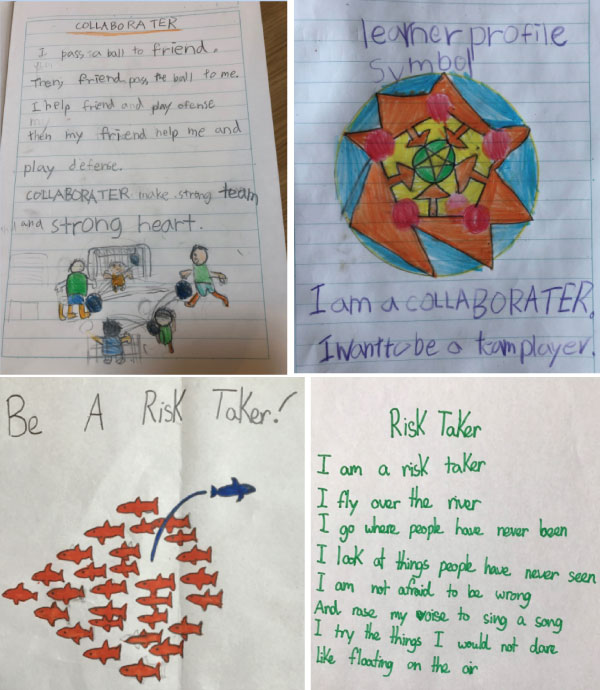 COLLABORATER
I pass a ball to friend.
Then, friend pass the ball to me.
I help friend and play ofense
then my friend help me and
play defense.
COLLABORATER make strong team
and strong heart.
learner profile
symbol
I am a COLLABORATER.
I want to be a team player.
Be A Risk Taker!
Risk Taker
I am a risk taker
I fly over the river
I go where people have never been
I look at things people have never seen
I am not afraid to be wrong
And rase my voise to sing a song
I try the things I would not dare
like floating on the air